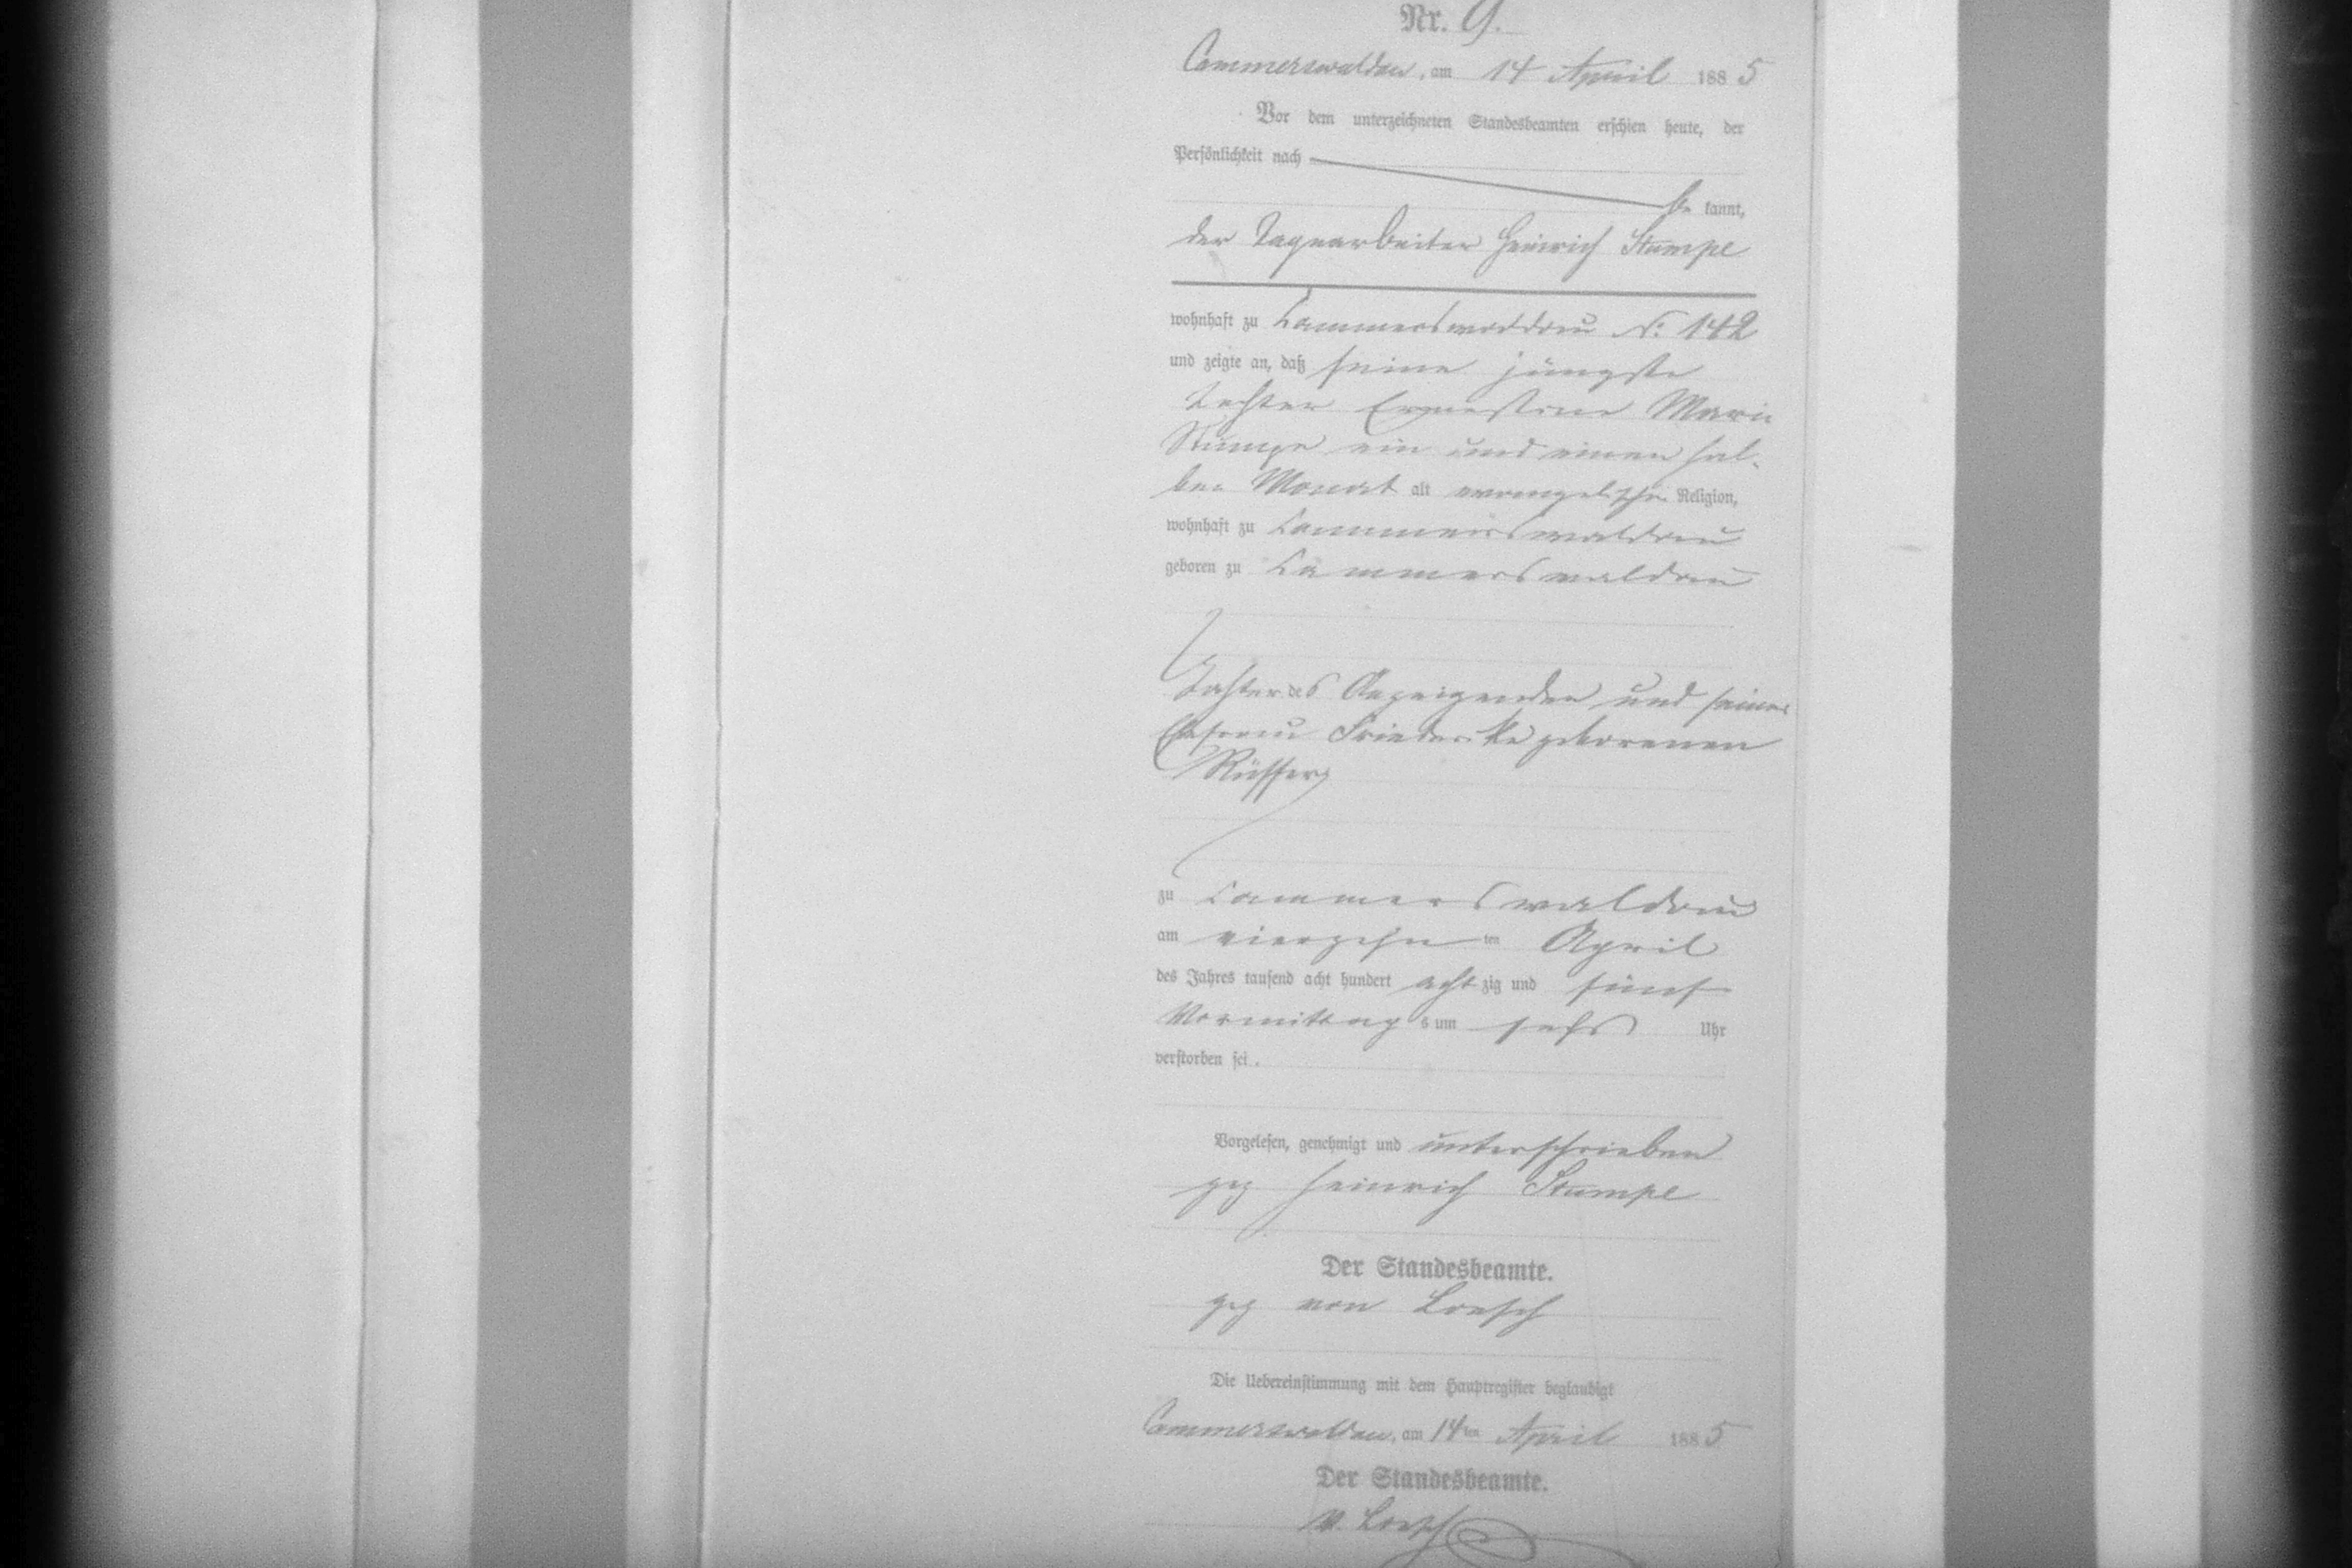 Nr. 9.
Cammerswaldau, am 14 April 1885
Vor dem unterzeichneten Standesbeamten erschien heute, der
Persönlichkeit nach
be kannt,
der Tagearbeiter Heinrich Stumpe
wohnhaft zu Cammerswaldau No: 142
und zeigte an, daß seine jüngste
Tochter Ernestine Marie
Stumpe ein und einen hal-
ben Monat alt evangelischer Religion,
wohnhaft zu Cammerswaldau
geboren zu Cammerswaldau
Tochter des Anzeigenden und seiner
Ehefrau Friederike geborenen
zu Cammerswaldau
am vierzehn ten April
des Jahres tausend acht hundert acht zig und fünf
Vormittag s um sechs Uhr
verstorben sei.
Vorgelesen, genehmigt und unterschrieben
gez Heinrich Stumpe
Der Standesbeamte.
gez von Loesch
Die Uebereinstimmung mit dem Hauptregister beglaubigt
Cammerswaldau, am 14ten April 1885
Der Standesbeamte.
v. Loesch